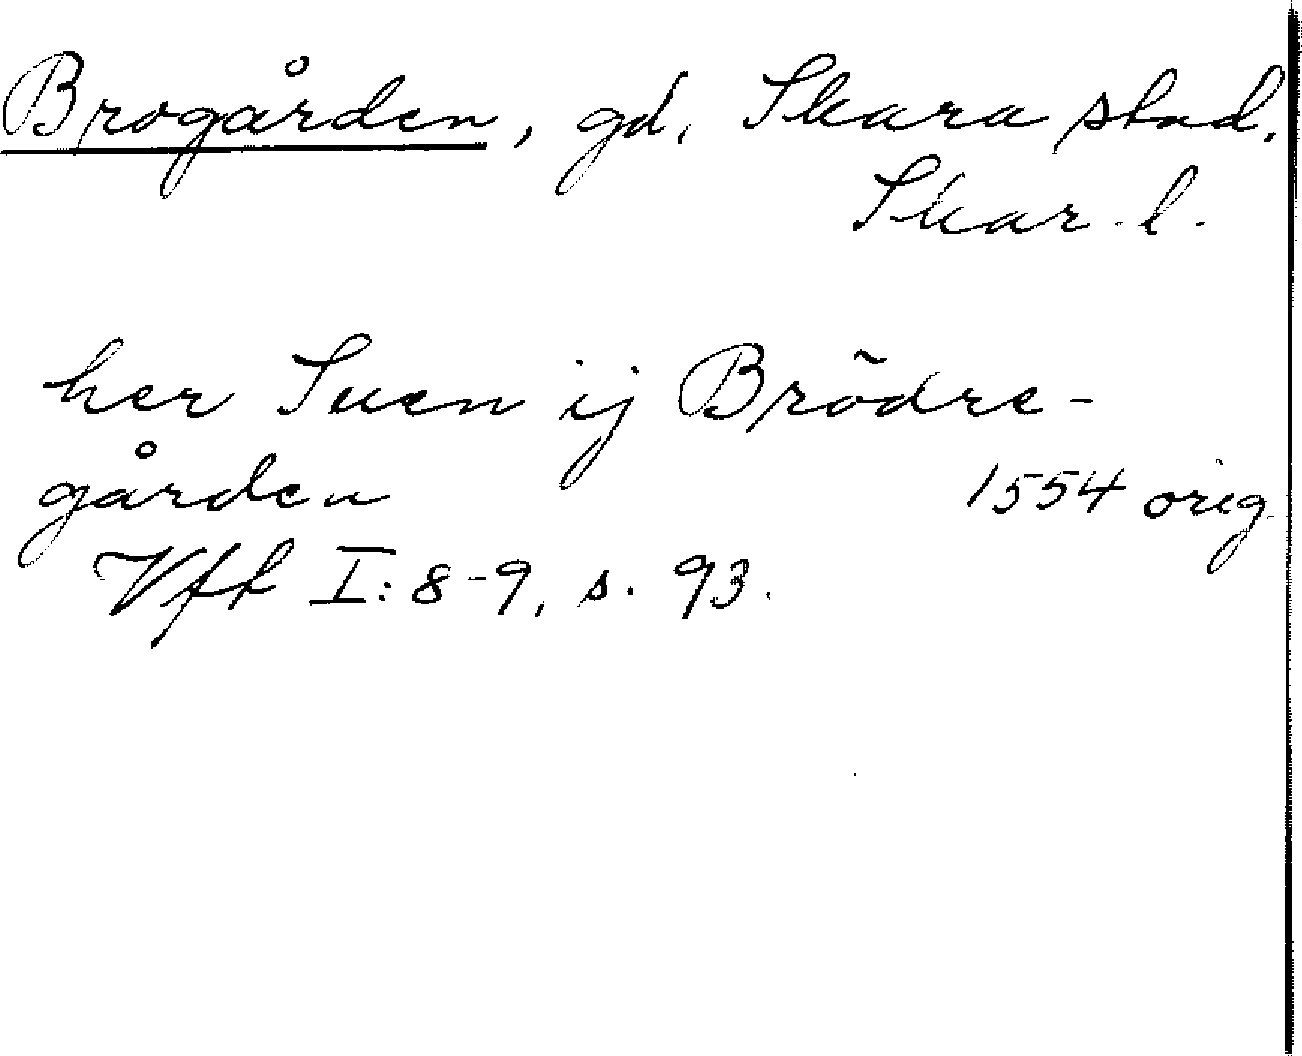 Brogården, gd, Skara stad.
Skar. l.
her Suen ij Brödre-
gården 1554 orig
Vft I: 8-9, s. 93.